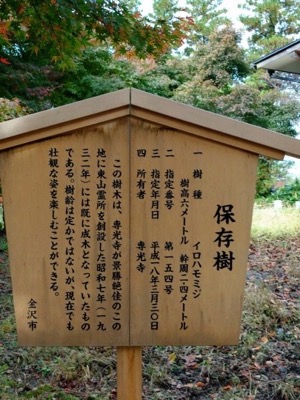 保存樹
一 樹種 イロハモミジ
樹高六メートル 幹周二・四メートル
二 指定番号 第一五四号
三 指定年月日 平成一八年三月三〇日
四 所有者 専光寺
この樹木は、専光寺が景勝絶佳のこの
地に東山霊所を創設した昭和七年(一九
三二年)には既に成木となっていたもの
である。樹齢は定かではないが、現在でも
壮観な姿を楽しむことができる。
金沢市